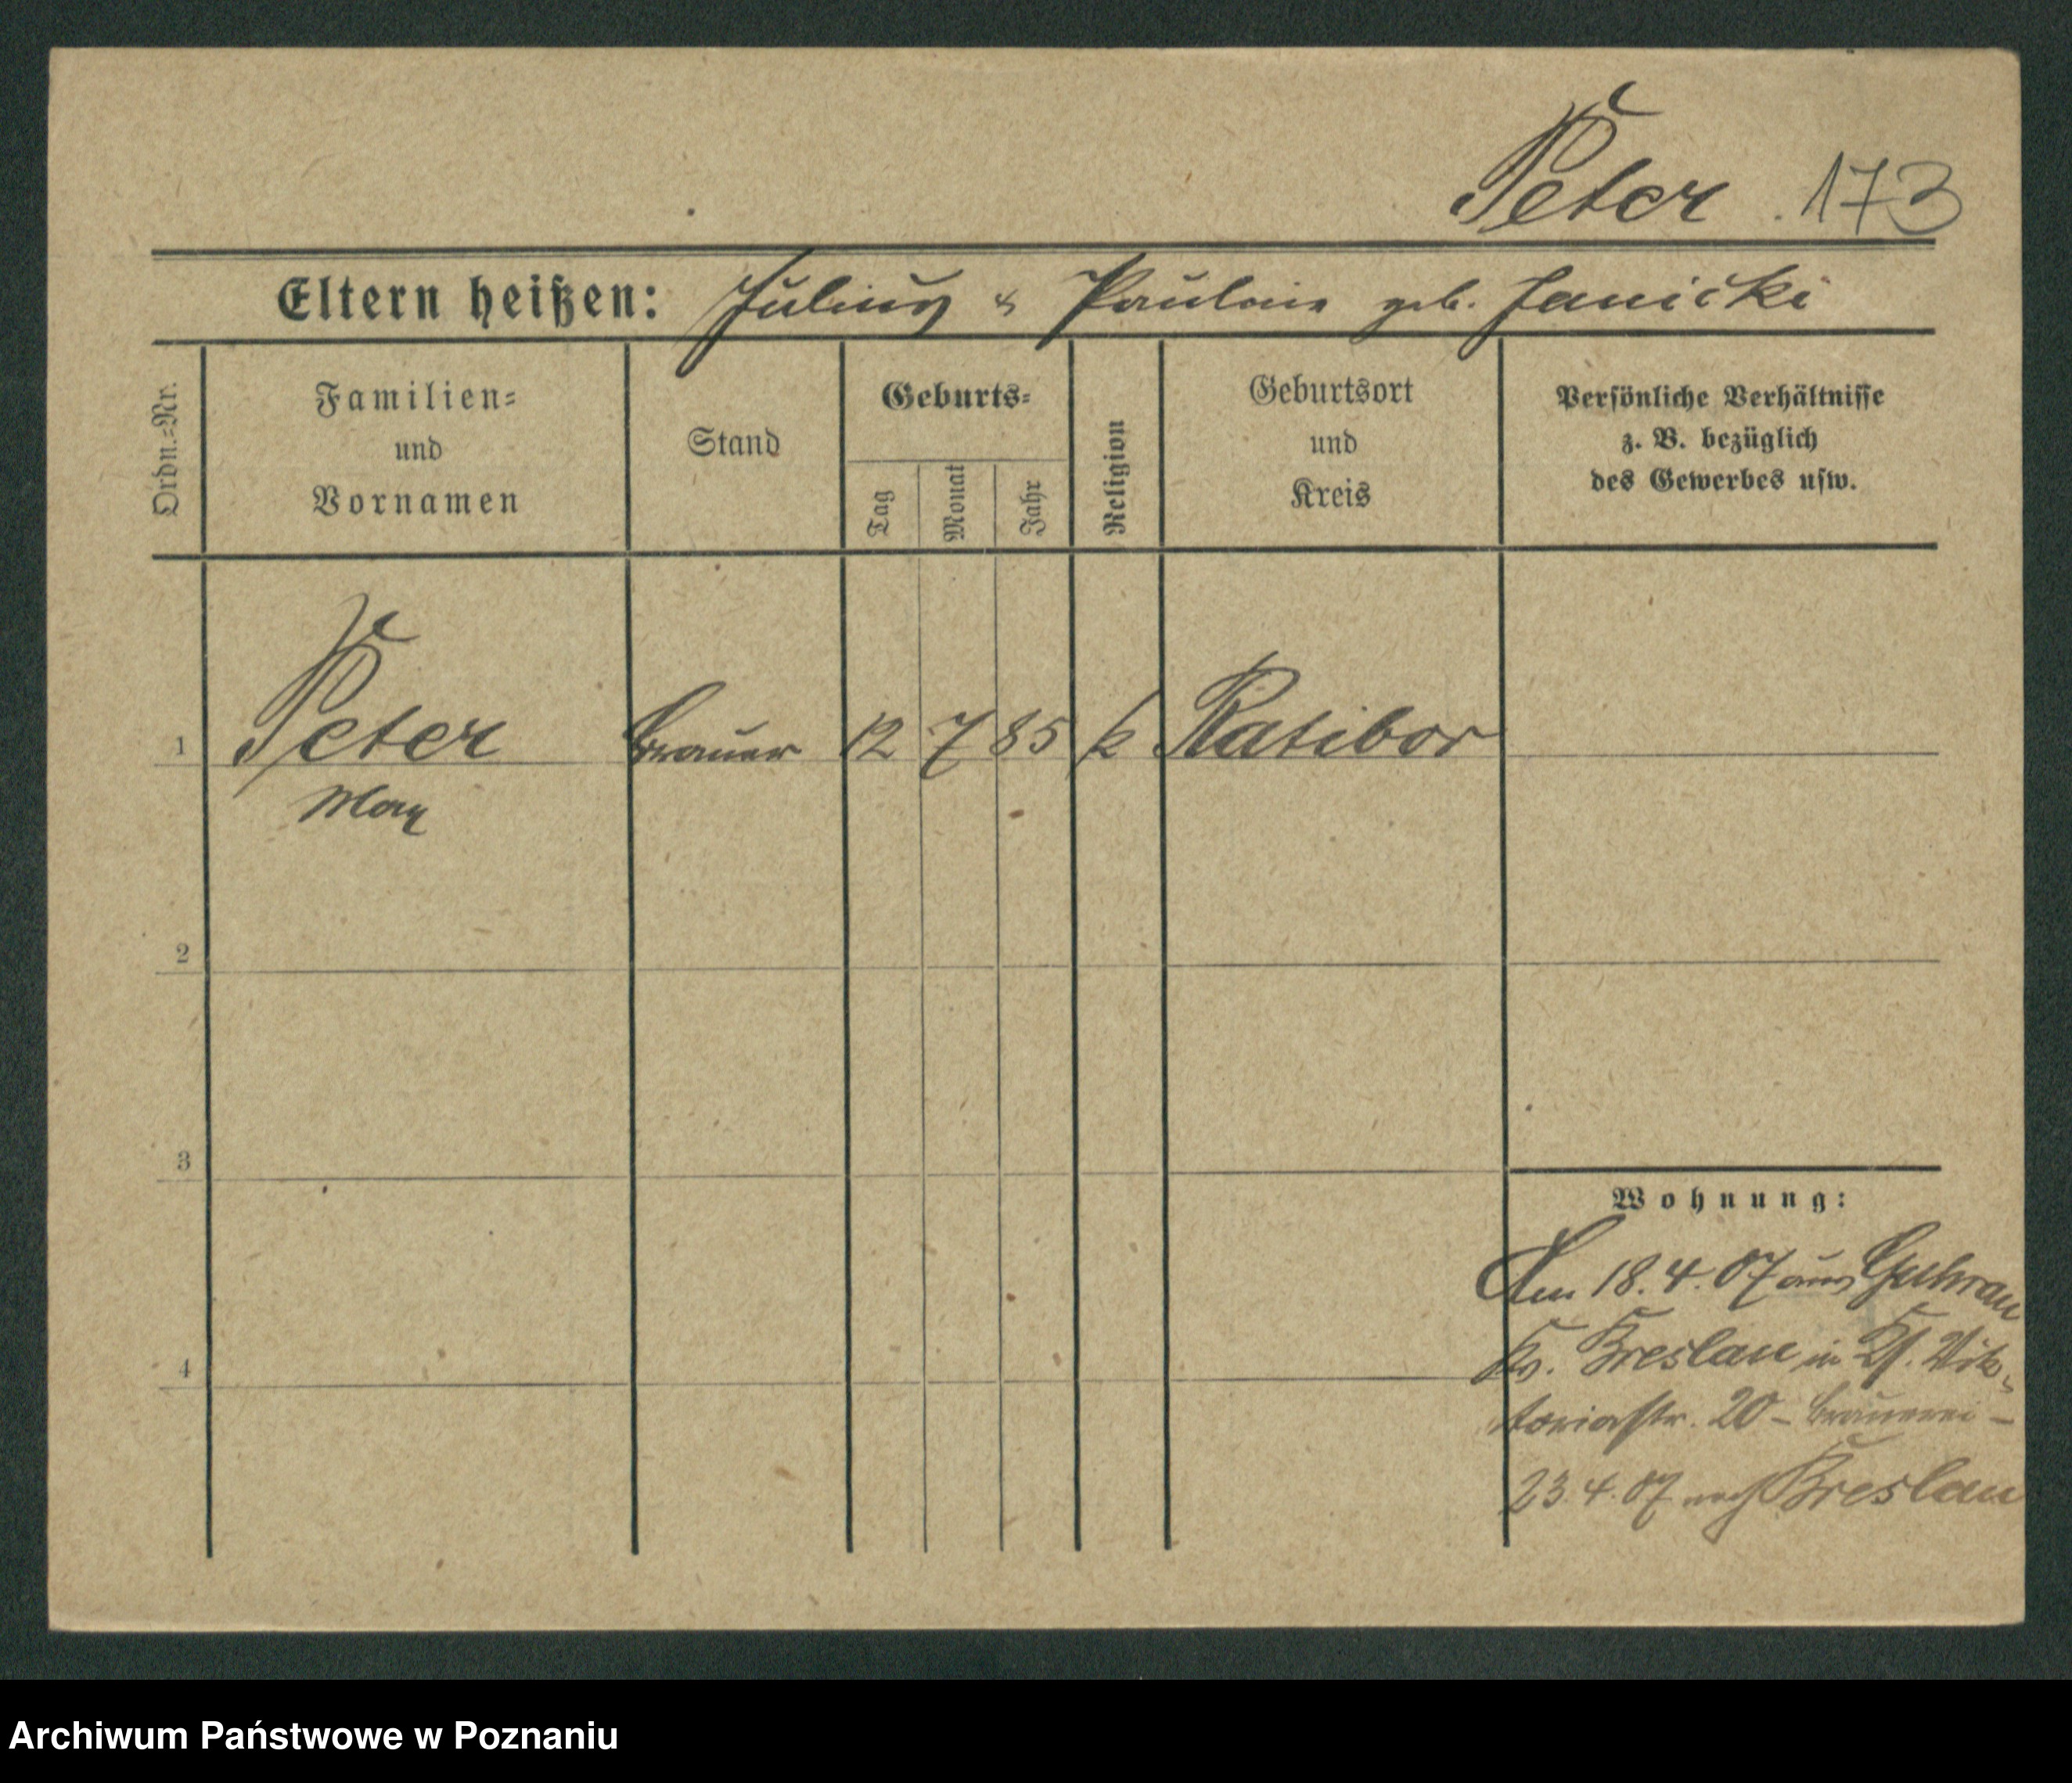 Peter. 173
Eltern heißen: Julius & Pauline geb. Janicki
Ordn.=Nr.
Familien=
und
Vornamen
Stand
Geburts=
Tag
Monat
Jahr
Religion
Geburtsort
und
Kreis
Persönliche Verhältnisse
z. B. bezüglich
des Gewerbes usw.
1 Peter Brauer 12 7 85 k Ratibor
Max
2
3
4
Wohnung:
Am 18.4.07 aus Guhrau
Kr. Breslau in Vik-
toriastr. 20 - Brauerei -
23.4.07 nach Breslau
Archiwum Państwowe w Poznaniu